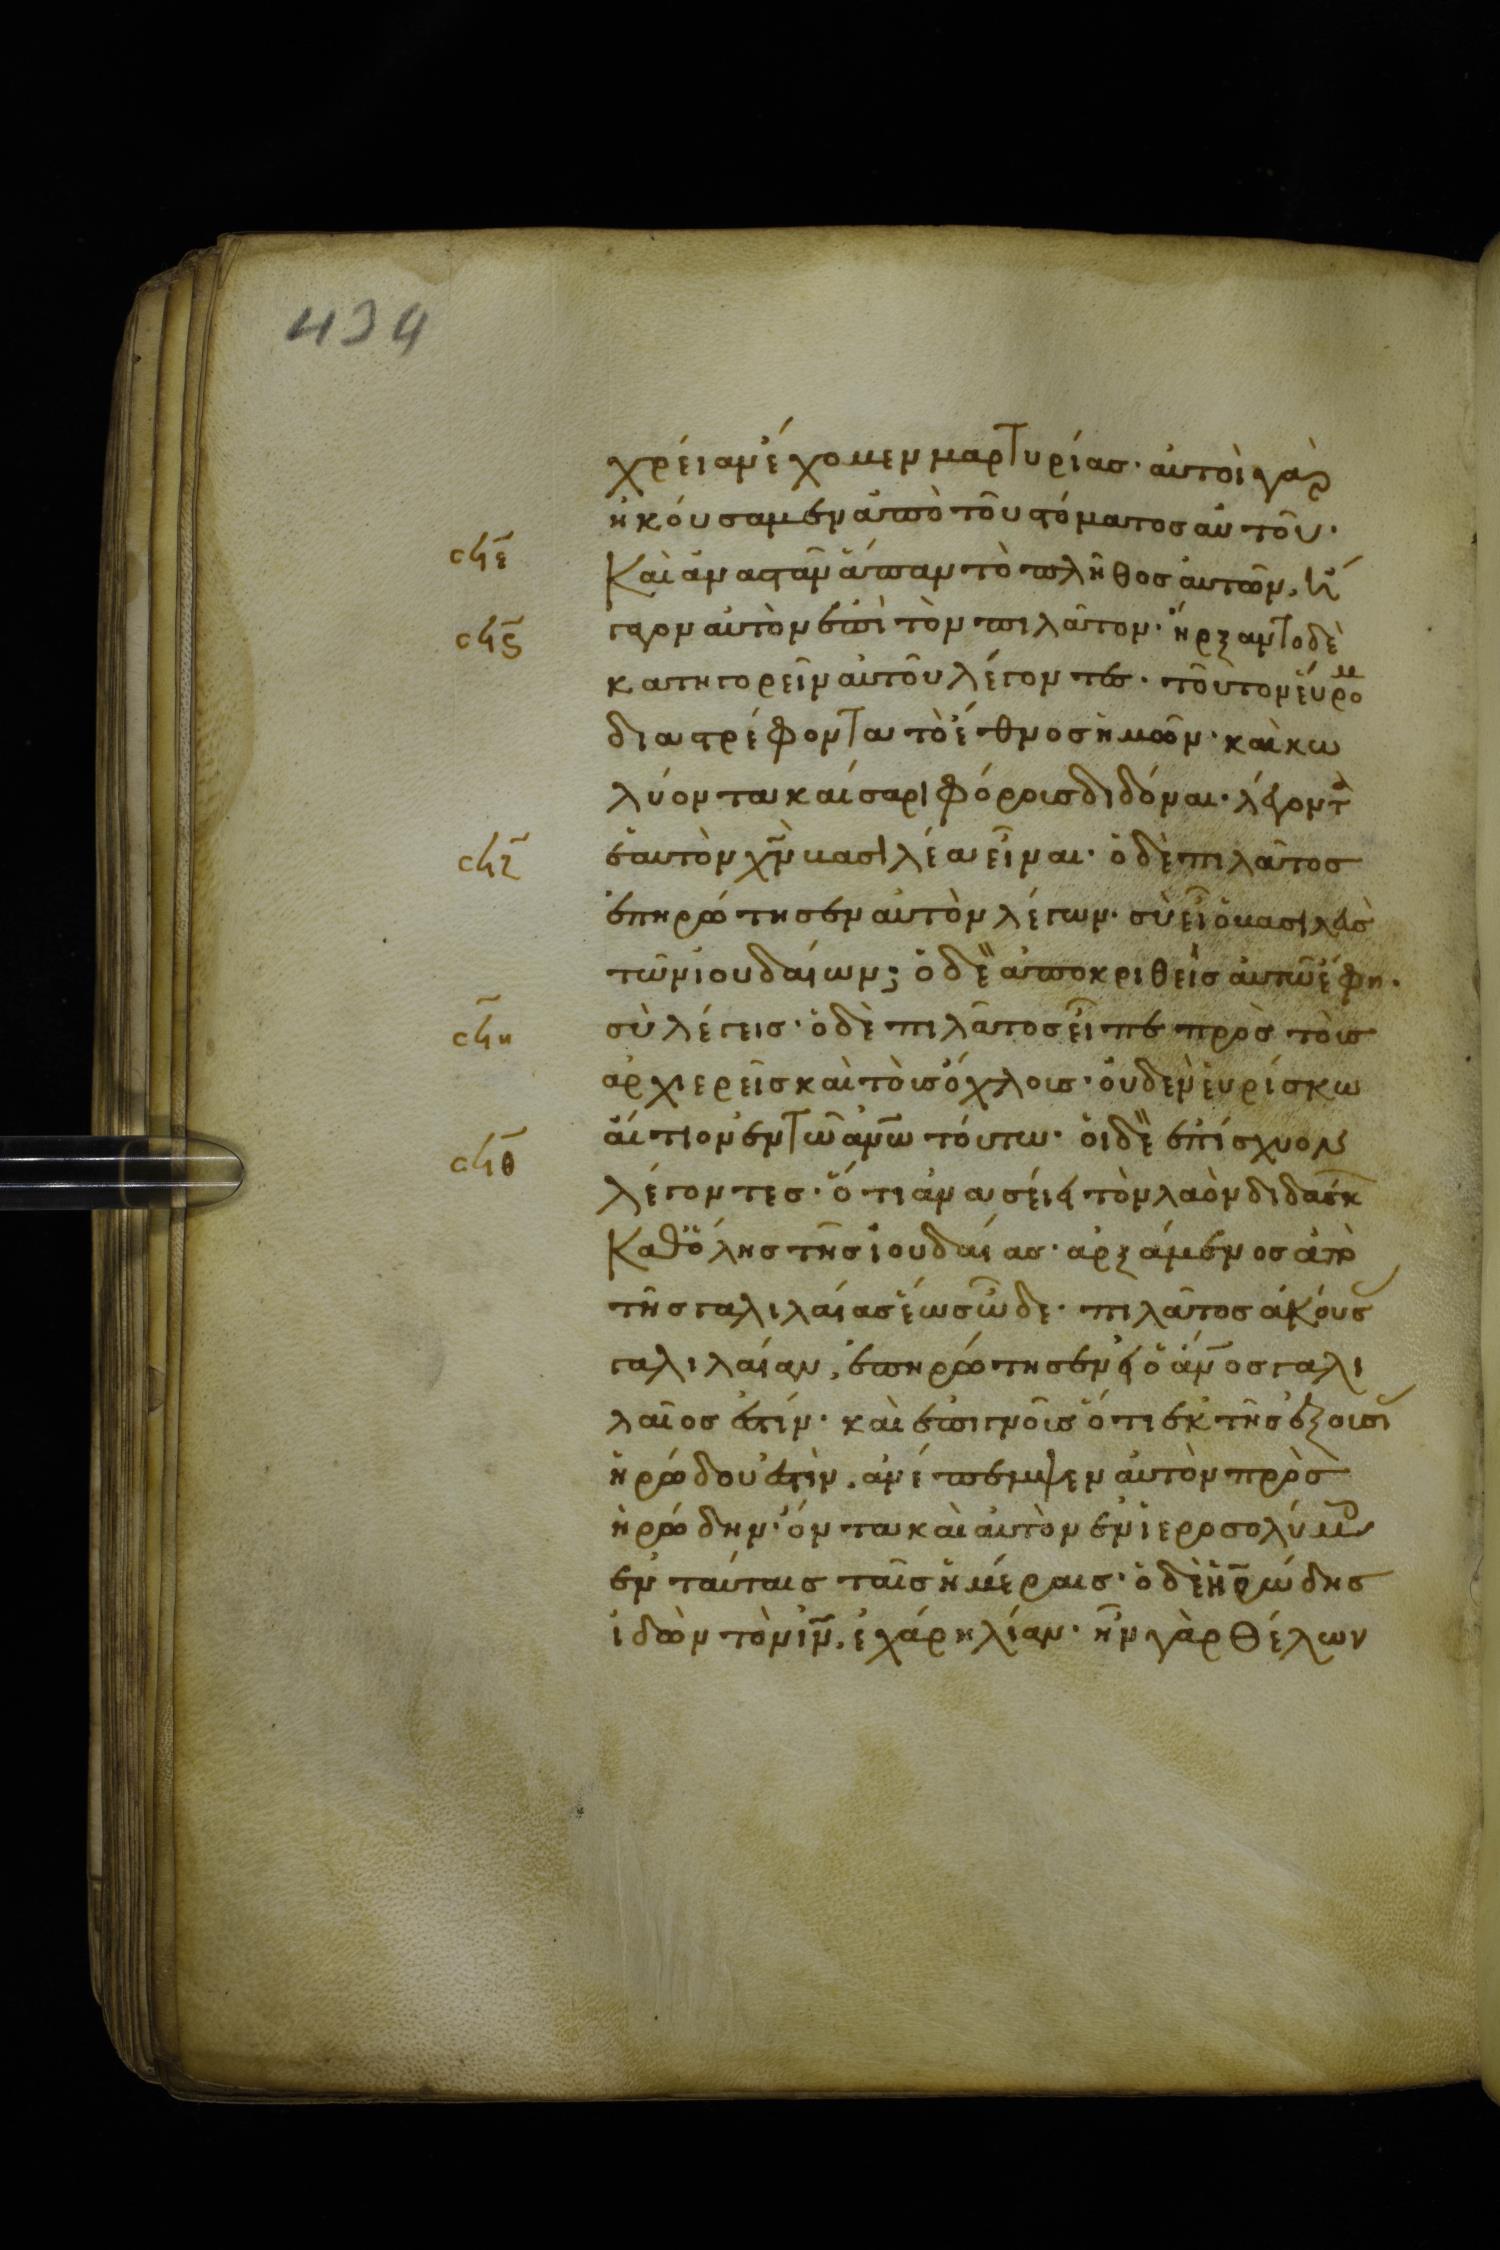 434
χρείαν ἔχομεν μαρτυρίασ· αὐτοὶ γὰρ
ἠκούσαμεν ἀπὸ τοῦ στόματοσ αὐτοῦ·
Καὶ ἀναστὰν ἅπαν τὸ πλῆθοσ αὐτῶν, ἤ
γαγον αὐτὸν ἐπὶ τὸν πιλᾶτον· ἤρξαντο δὲ
κατηγορεῖν αὐτοῦ λέγοντεσ· τοῦτον εὕρομ
διαστρέφοντα τὸ ἔθνοσ ἡμῶν· καὶ κω
λύοντα καίσαρι φόρουσ διδόναι· λέγοντ
ἑαυτὸν χν̅ βασιλέα εἶναι· ὁ δὲ πιλᾶτοσ
ἐπηρώτησεν αὐτὸν λέγων· σὺ εἶ ὁ βασιλεὺσ
τῶν ἰουδαίων; ὁ δὲ ἀποκριθεὶσ αὐτῶ ἔφη·
σὺ λέγεισ· ὁ δὲ πιλᾶτοσ εἶπε πρὸσ τοὺσ
ἀρχιερεῖσ καὶ τοὺσ ὄχλουσ· οὐδὲν εὑρίσκω
αἴτιον ἐν τῶ ανω̅ τούτω· οἱ δὲ ἐπίσχυον
λέγοντεσ· ὅτι ἀνασείει τὸν λαὸν διδάσκ
Καθ' ὅλησ τῆσ ἰουδαίασ· ἀρξάμενοσ ἀπὸ
τῆσ γαλιλαίασ ἕωσ ὧδε· πιλᾶτοσ ἀκούσ
γαλιλαίαν, ἐπηρώτησεν εἰ ὁ αν̅οσ γαλι
λαῖοσ ἐστίν· καὶ ἐπιγνοὺσ ὅτι ἐκ τῆσ ἐξουσί
ἡρώδου ἐστὶν, ἀνέπεμψεν αὐτὸν πρὸσ
ἡρώδην· ὄντα καὶ αὐτὸν ἐν ἱεροσολύμοισ
ἐν ταύταισ ταῖσ ἡμέραισ· ὁ δὲ ἡρώδησ
ἰδὼν τὸν ιν̅, ἐχάρη λίαν· ἦν γὰρ θέλων